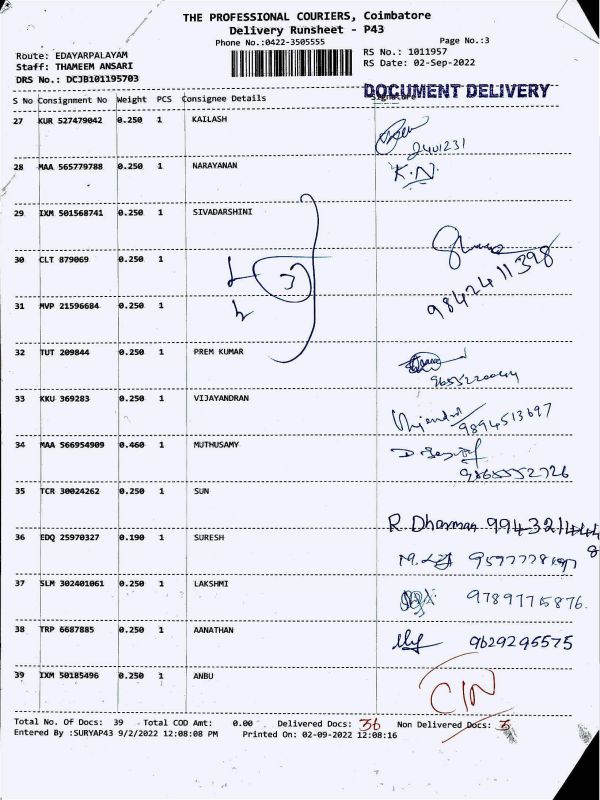 THE PROFESSIONAL COURIERS, Coimbatore
Delivery Runsheet - P43
Phone No.:0422-3505555
Page No.:3
Route: EDAYARPALAYAM
RS No.: 1011957
Staff: THAMEEM ANSARI
RS Date: 02-Sep-2022
DRS No.: DCJB101195703
DOCUMENT DELIVERY
S No Consignment No Weight PCS Consignee Details Signature
27 KUR 527479042 0.250 1 KAILASH
2401231
28 MAA 565779788 0.250 1 NARAYANAN K.N.
29 IXM 501568741 0.250 1 SIVADARSHINI
30 CLT 879069 0.250 1
3
9842411398
31 MVP 21596684 0.250 1
32 TUT 209844 0.250 1 PREM KUMAR
33 KKU 369283 0.250 1 VIJAYANDRAN
9894513697
34 MAA 566954909 0.460 1 MUTHUSAMY
9865552726
35 TCR 30024262 0.250 1 SUN
R. Dharman
36 EDQ 25970327 0.190 1 SURESH
37 SLM 302401061 0.250 1 LAKSHMI 9789775876.
38 TRP 6687885 0.250 1 AANATHAN 9629295575
39 IXM 50185496 0.250 1 ANBU
C/N
Total No. Of Docs: 39 Total COD Amt: 0.00 Delivered Docs: 36 Non Delivered Docs: 3
Entered By :SURYAP43 9/2/2022 12:08:08 PM Printed On: 02-09-2022 12:08:16